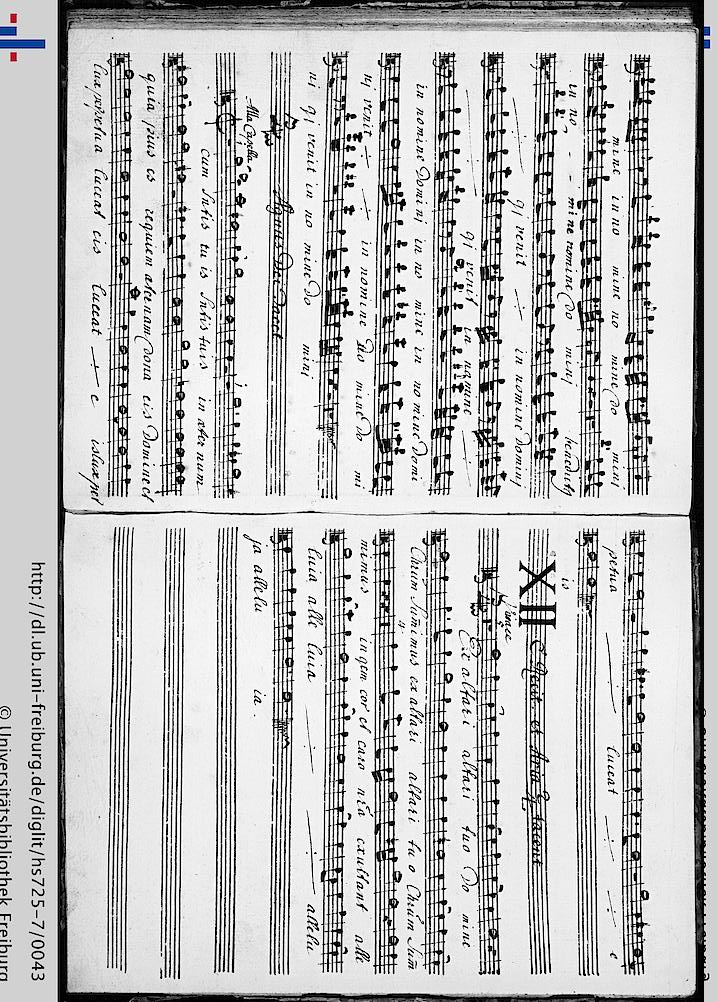 mine in no mine no mine do minj
in no - - mine nomine do minj
qi venit in nomine Dominj
qi venit in nomine
in nomine Dominj in no mine in no mine Domi
nj venit in nomine Do mine do mi
ni qi venit in no mine Do mini
Agnus Dei tacet
Alla Capella
cum Sctis tu is Sctis tuis in æternum
quia pius es requiem æternam dona eis Domine et
lux perpetua luceat eis luceat e is lux per
petua luceat e
is
XII
et Aria tacent
Vivace
Ex altari altari tuo Do mine
Chrum Sumimus ex altari altari tu o Chrum Sum
mimus in qem cor et caro nra exultant alle
luia alle luia allelu
ja allelu ia.
http://dl.ub.uni-freiburg.de/diglit/hs725-7/0043
© Universitätsbibliothek Freiburg